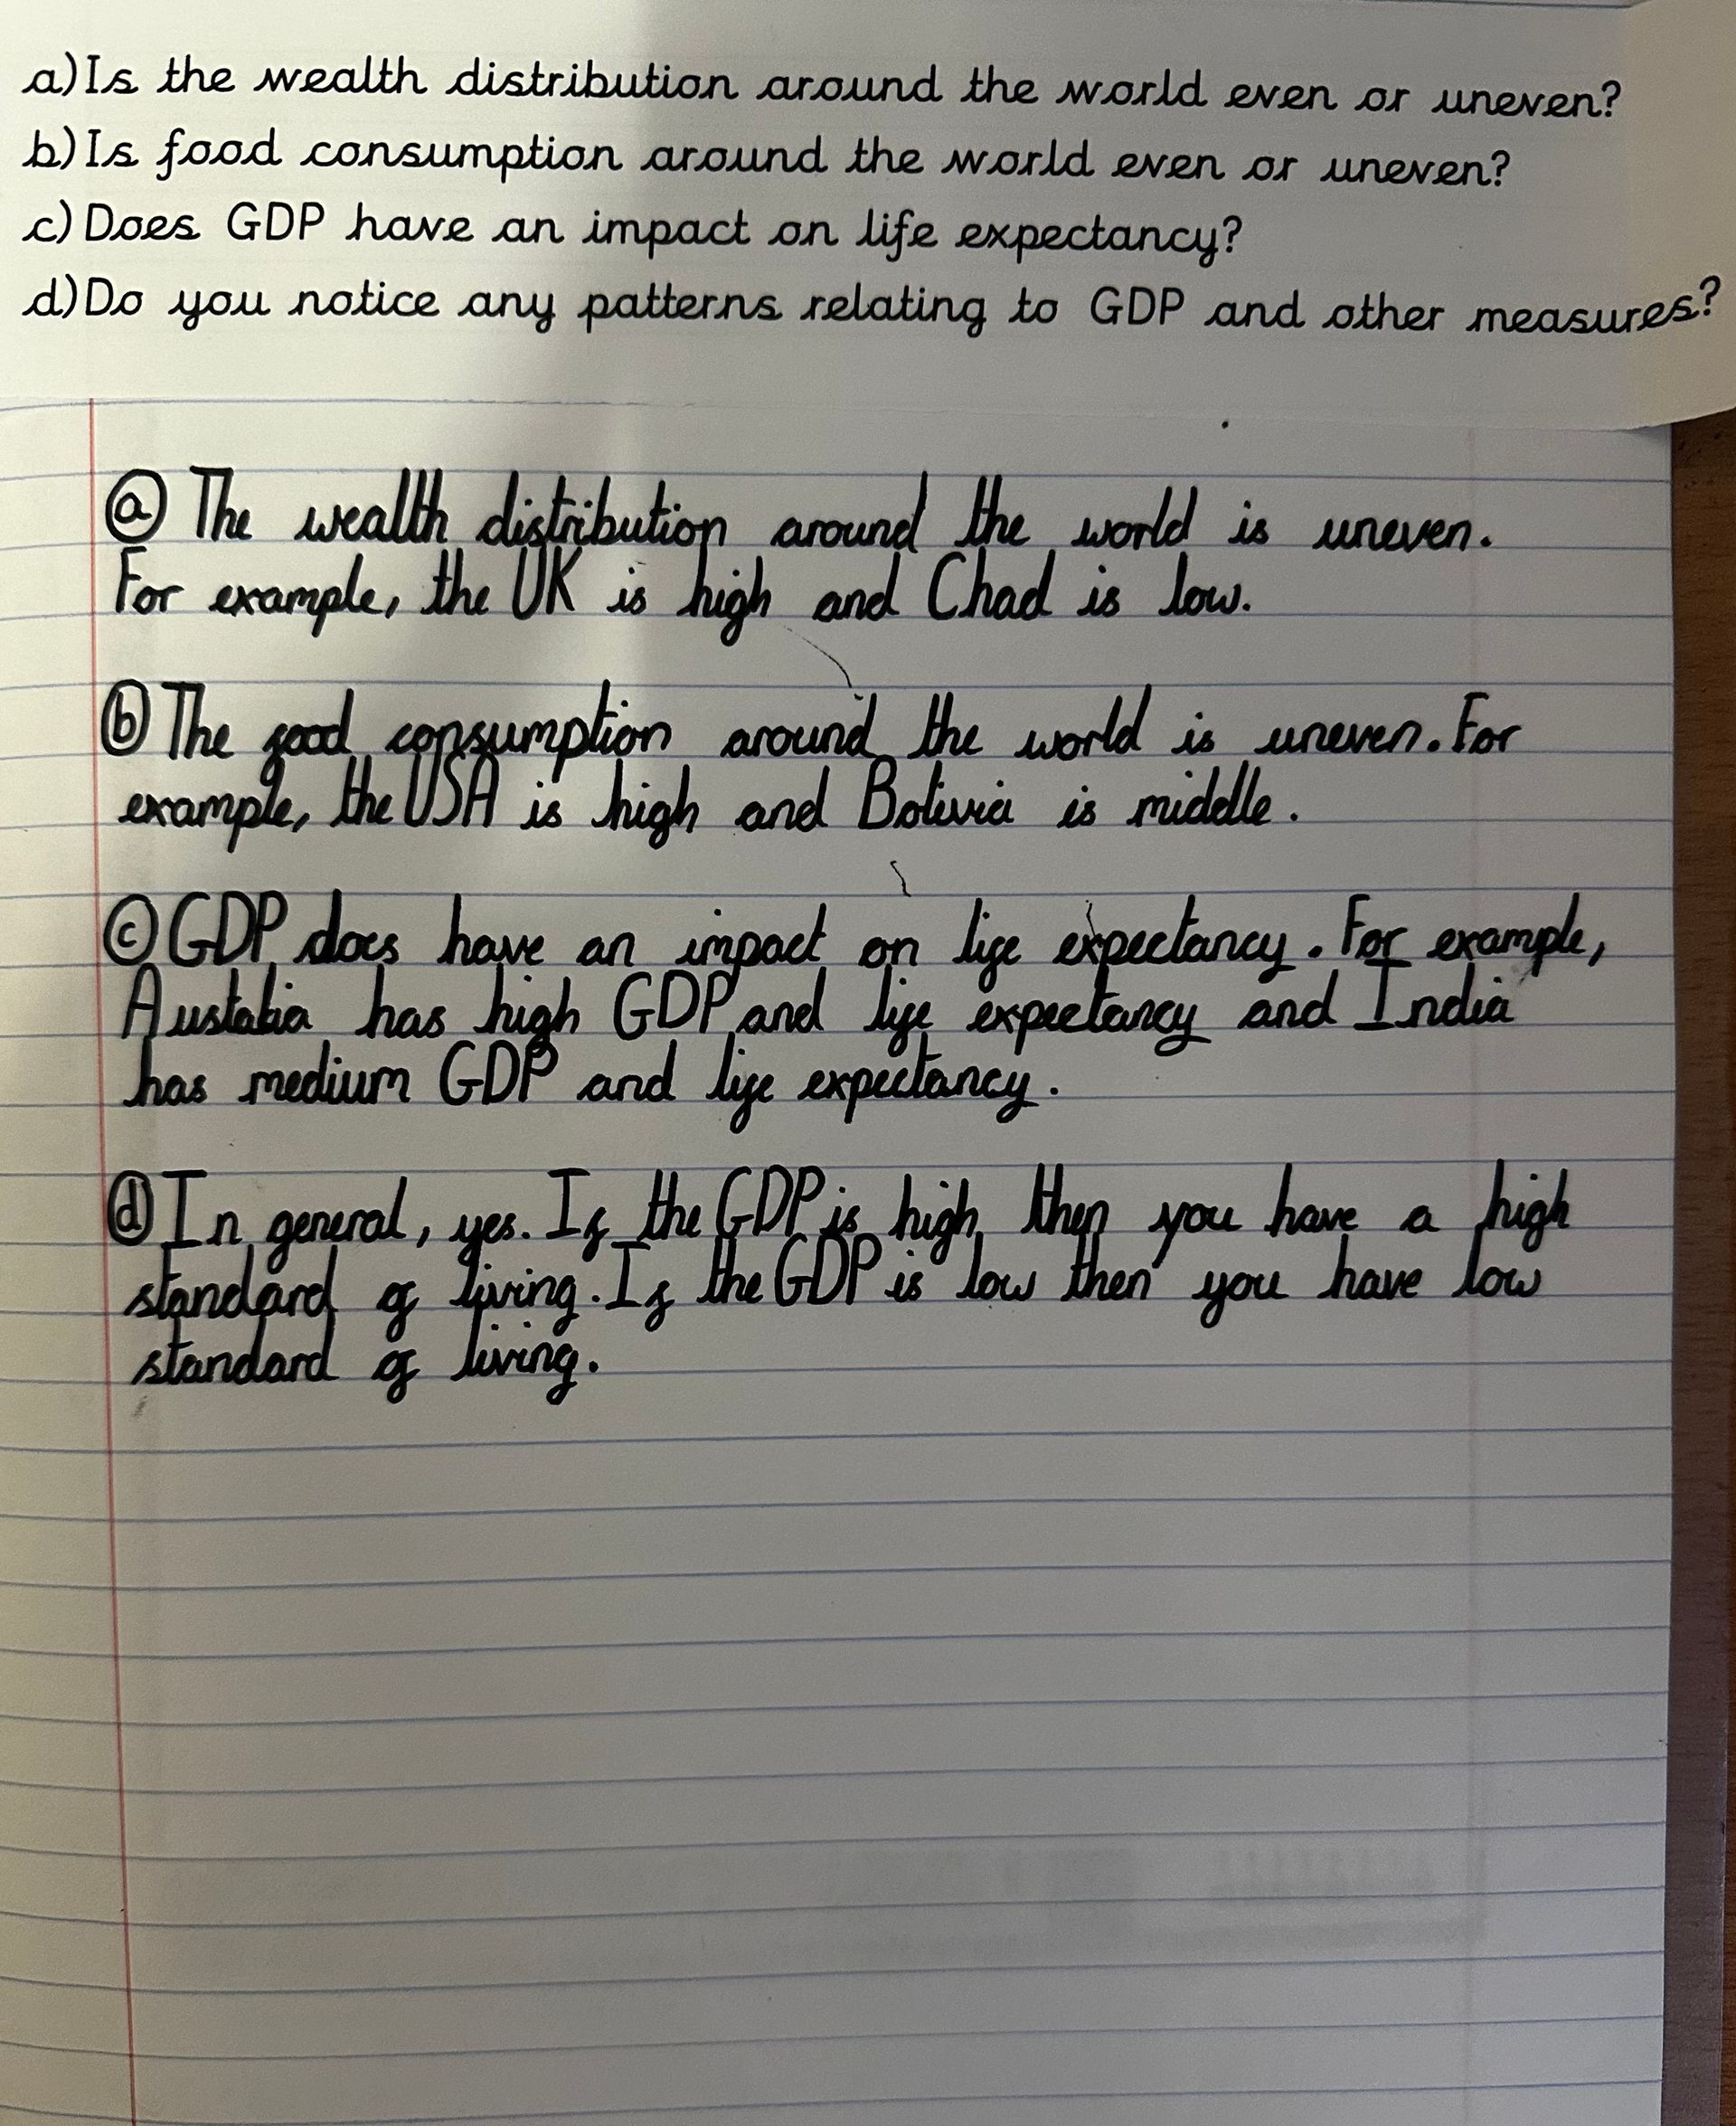 a) Is the wealth distribution around the world even or uneven?
b) Is food consumption around the world even or uneven?
c) Does GDP have an impact on life expectancy?
d) Do you notice any patterns relating to GDP and other measures?
ⓐ The wealth distribution around the world is uneven.
For example, the UK is high and Chad is low.
ⓑ The food consumption around the world is uneven. For
example, the USA is high and Bolivia is middle.
ⓒ GDP does have an impact on life expectancy. For example,
Austalia has high GDP and life expectancy and India
has medium GDP and life expectancy.
ⓓ In general, yes. If the GDP is high then you have a high
standard of living. If the GDP is low then you have low
standard of living.